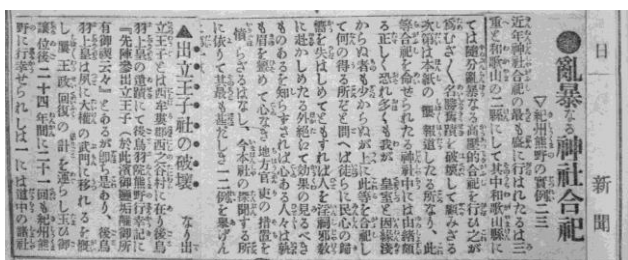 日　新聞
●亂暴なる神社合祀
▽紀州熊野の實例二三
近年神社合祀の最も盛に行はれたるは三
重と和歌山の二縣にして其中和歌山縣に
ては隨分亂暴なる高壓的合祀を行ひ之が
爲むざ〳〵名勝舊蹟を破壞して顧みざる
次第は本紙の屢報道したる所なり、此
等合祀を命ぜられたる神社中には
る正しく恐れ多くも我が　皇室と因緣淺
からぬ者も少からぬが上に此等を合祀し
て何の得る所ぞと問へば徒らに民心の歸
嚮を失はしめてともすれば人を淫祠邪敎
に趨かしめたる外絶ゑて効果の見るべき
ものあるを知らずされば心ある人々は孰
も眉を顰めて心なき地方官吏の措置を
憤らざるはなし、今本社の探聞する所
に依りて其最も甚だしき一二例を擧げん
▲出立王子社の破壞　なり出
立王子とは西牟婁郡西之谷村に在り後鳥
羽上皇の遺蹟にて後鳥羽院熊野行幸記に
『先陣參出立王子（於此濱御鹽垢離御所
有御禊云々』とあるが卽ち是あり、後鳥
羽上皇は夙に大權の武門に移れるを慨
し屢王政回復の計を運らし玉ひ御
讓位後二十四年間に二十一囘も紀州熊
野に行幸せられしは一には道中の諸社